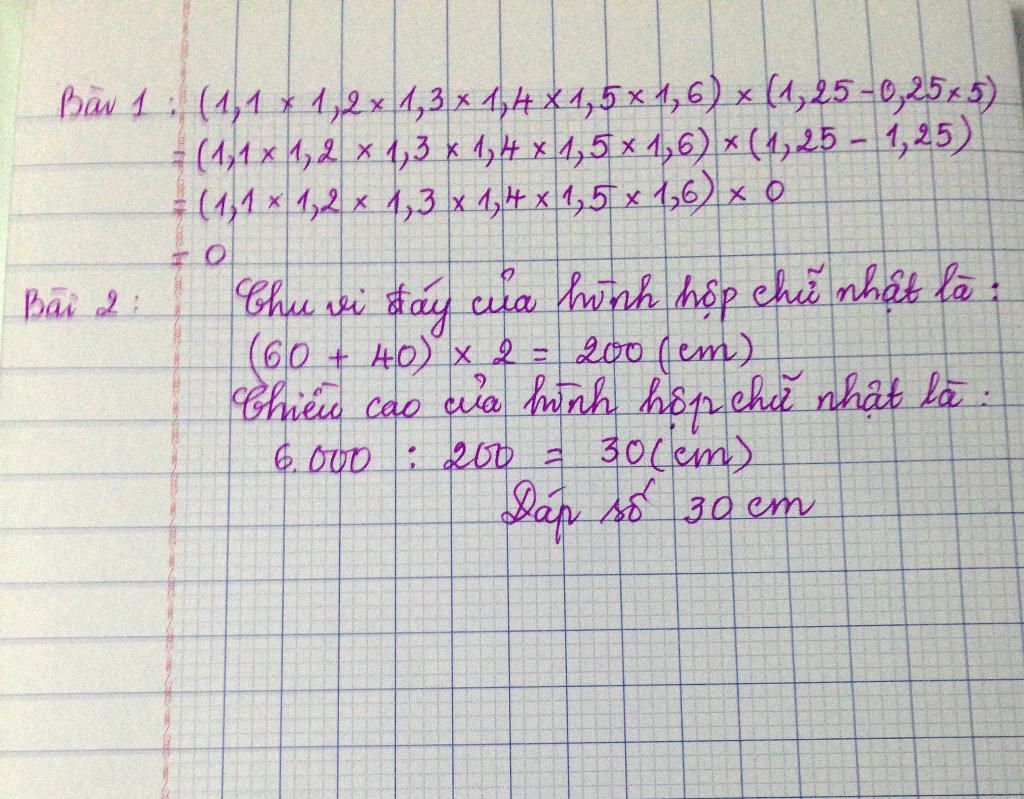 Bài 1 : (1,1 × 1,2 × 1,3 × 1,4 × 1,5 × 1,6) × (1,25 - 0,25 × 5)
= (1,1 × 1,2 × 1,3 × 1,4 × 1,5 × 1,6) × (1,25 - 1,25)
= (1,1 × 1,2 × 1,3 × 1,4 × 1,5 × 1,6) × 0
= 0
Bài 2 : Chu vi đáy của hình hộp chữ nhật là :
(60 + 40) × 2 = 200 (cm)
Chiều cao của hình hộp chữ nhật là :
6.000 : 200 = 30 (cm)
Đáp số 30 cm